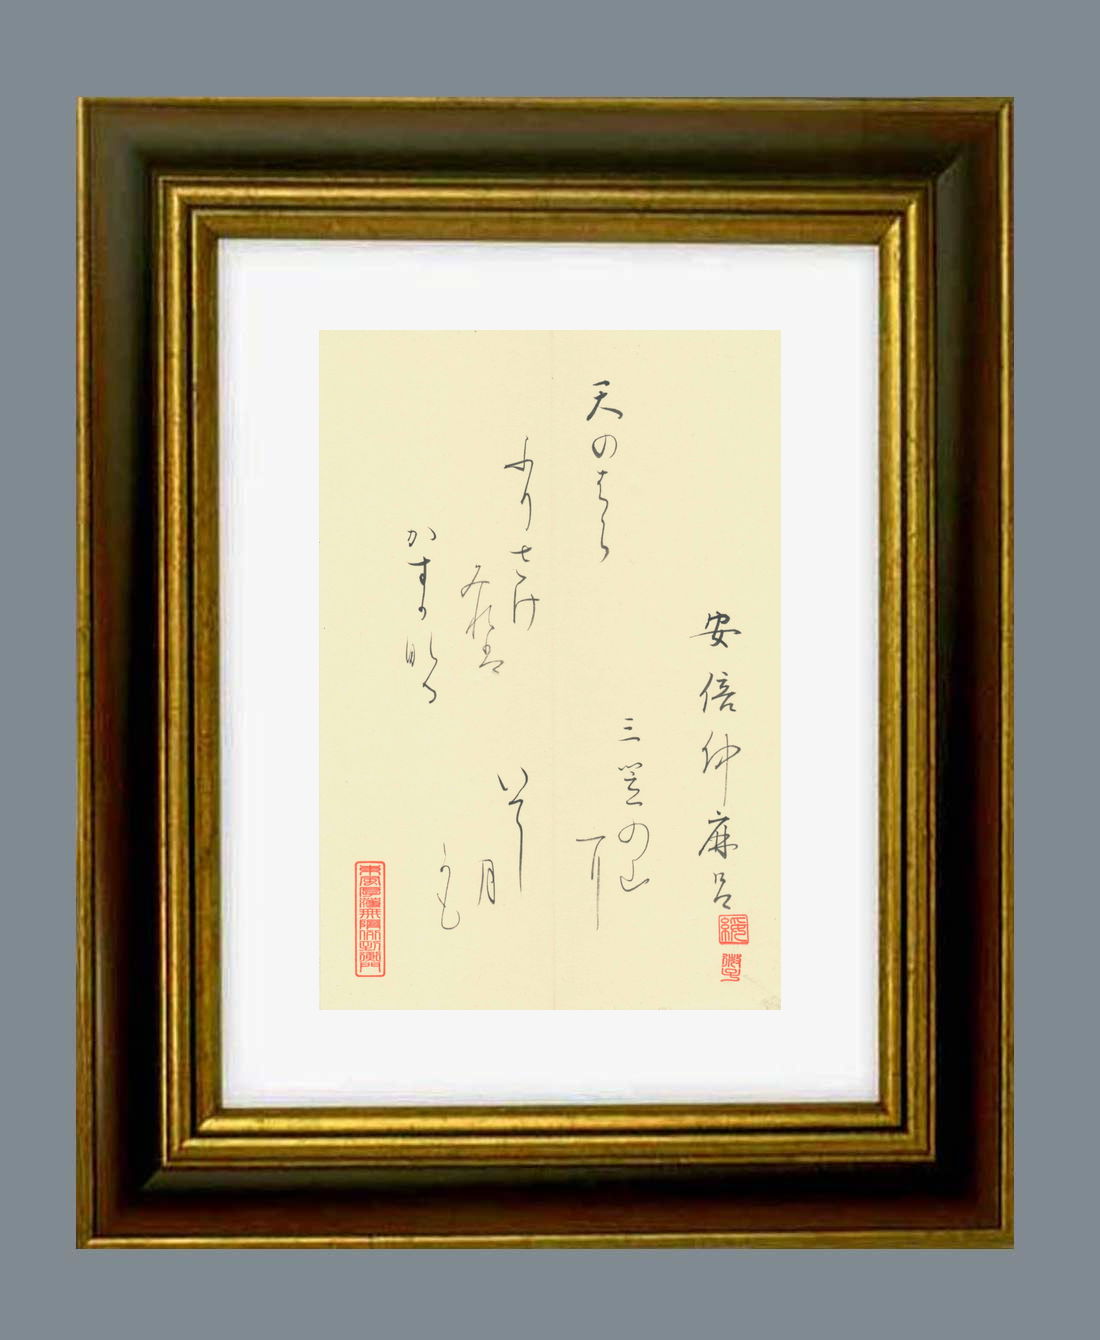 安倍仲麻呂
天のはら
ふりさけ
みれは
かすかなる
三笠の山
に
いてし
月
かも